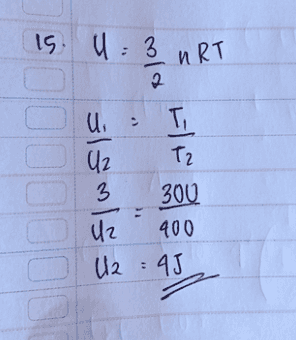 15. U = 3/2 nRT
U1/U2 = T1/T2
3/U2 = 300/400
U2 = 4J